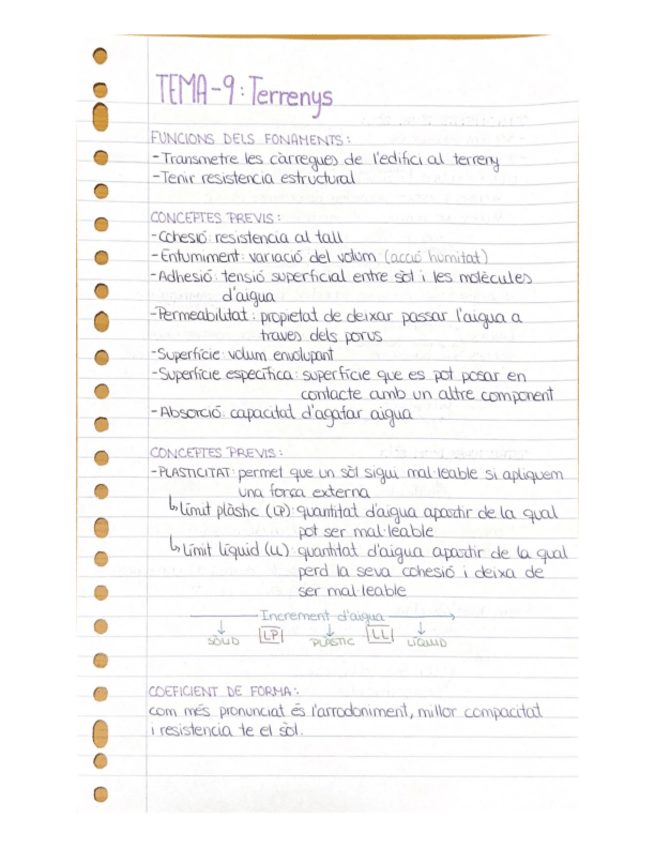 TEMA-9: Terrenys
FUNCIONS DELS FONAMENTS:
-Transmetre les càrregues de l'edifici al terreny
-Tenir resistencia estructural
CONCEPTES PREVIS:
-Cohesió: resistencia al tall
-Entumiment: variació del volum (acció humitat)
-Adhesió: tensió superficial entre sòl i les molècules
d'aigua
-Permeabilitat: propietat de deixar passar l'aigua a
traves dels porus
-Superfície: volum envolupant
-Superfície específica: superfície que es pot posar en
contacte amb un altre component
-Absorció: capacitat d'agafar aigua
CONCEPTES PREVIS:
-PLASTICITAT: permet que un sòl sigui mal·leable si apliquem
una força externa
↳Límit plàstic (LP): quantitat d'aigua apartir de la qual
pot ser mal·leable
↳Límit líquid (LL): quantitat d'aigua apartir de la qual
perd la seva cohesió i deixa de
ser mal·leable
Increment d'aigua
SÒLID LP PLÀSTIC LL LÍQUID
COEFICIENT DE FORMA:
com més pronunciat és l'arrodoniment, millor compacitat
i resistencia te el sòl.